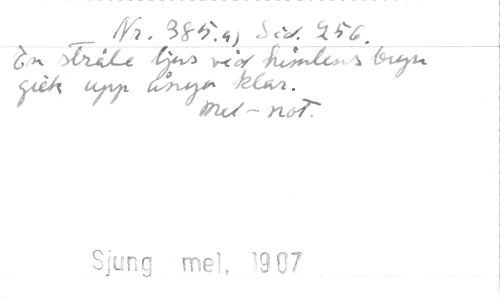 Nr. 385.a) Sid. 256.
En stråle ljus vid himlens bryn
gick upp ånyo klar.
Mel-not.
Sjung mel. 1907